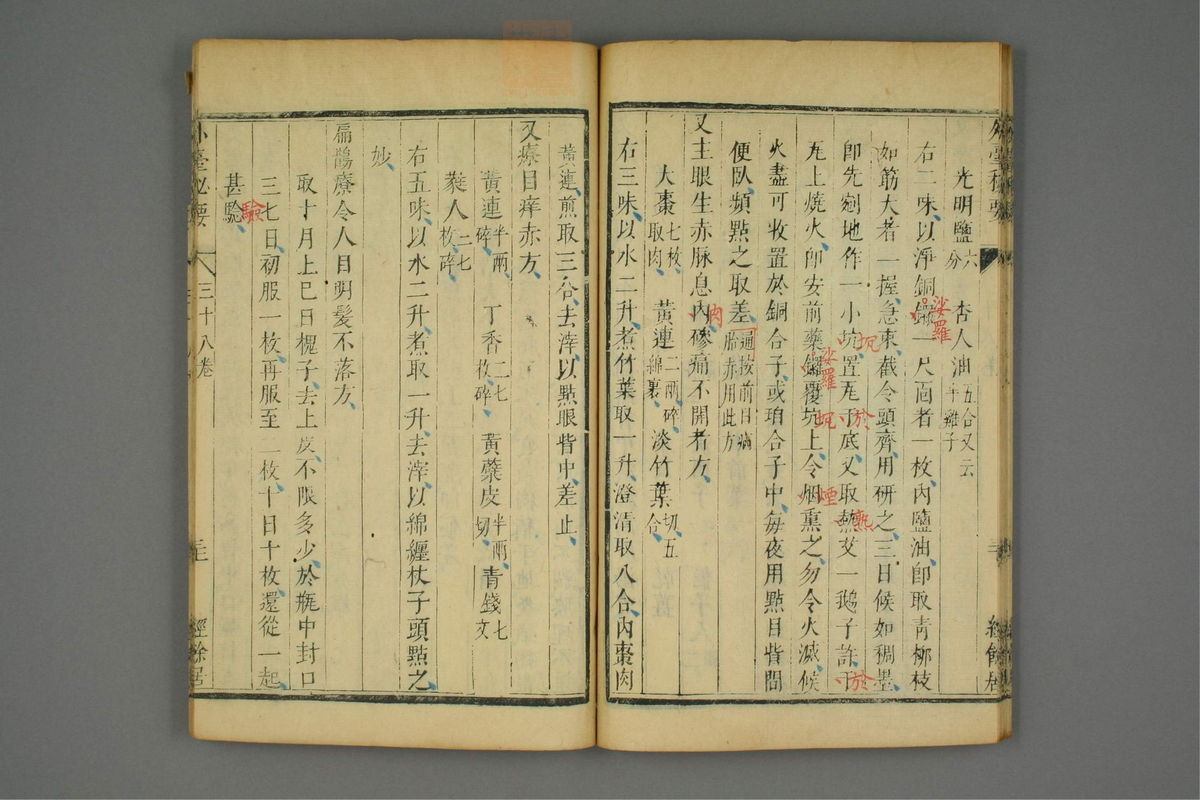 光明鹽六分　杏人油五合又云半雞子
右二味以淨銅鑼一尺面者一枚內鹽油卽取青柳枝
娑羅
如筋大者一握急束截令頭齊用研之三日候如稠墨
卽先剜地作一小坑置𤬪于底又取熱艾一鵝子許于
坈
於
熟
於
𤬪上燒火卽安前藥鑼覆坑上令烟熏之勿令火滅候
娑羅
坈
煙
火盡可收置於銅合子或珀合子中每夜用點目眥間
便臥頻點之取差一遍按前日病胎赤用此方
又主眼生赤脉息內磣痛不開者方
肉
大棗七枚取肉　黃連二兩碎綿裹　淡竹葉切五合
右三味以水二升煮竹葉取一升澄清取八合內棗肉
黃連煎取三合去滓以點眼眥中差止
又療目痒赤方
黃連半兩碎　丁香二七枚碎　黃蘗皮半兩切　青錢七文
蕤人二七枚碎
右五味以水二升煮取一升去滓以綿纏杖子頭點之
妙
扁鵲療令人目明髮不落方
取十月上巳日槐子去上皮不限多少於瓶中封口
三七日初服一枚再服至二枚十日十枚還從一起
甚驗
驗
外臺祕要　三十八卷　經餘居